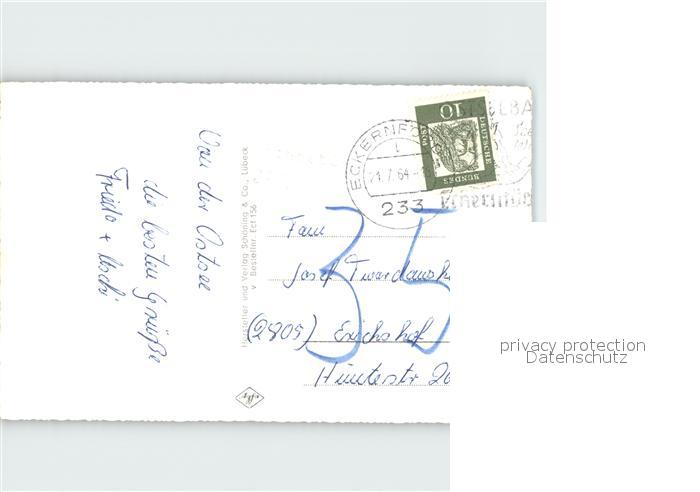 Von der Ostsee
die besten Grüße
Friedo + Uschi
Hersteller und Verlag Schöning & Co., Lübeck
Bestellnr. Ecf 156
10
DEUTSCHE
BUNDES
POST
ECKERNFÖ
21.7.64
233
OSTSEEBA
ECKERNFÖ
Fam
Josef
(2805) Erichshof
Huntestr 20
35
privacy protection
Datenschutz